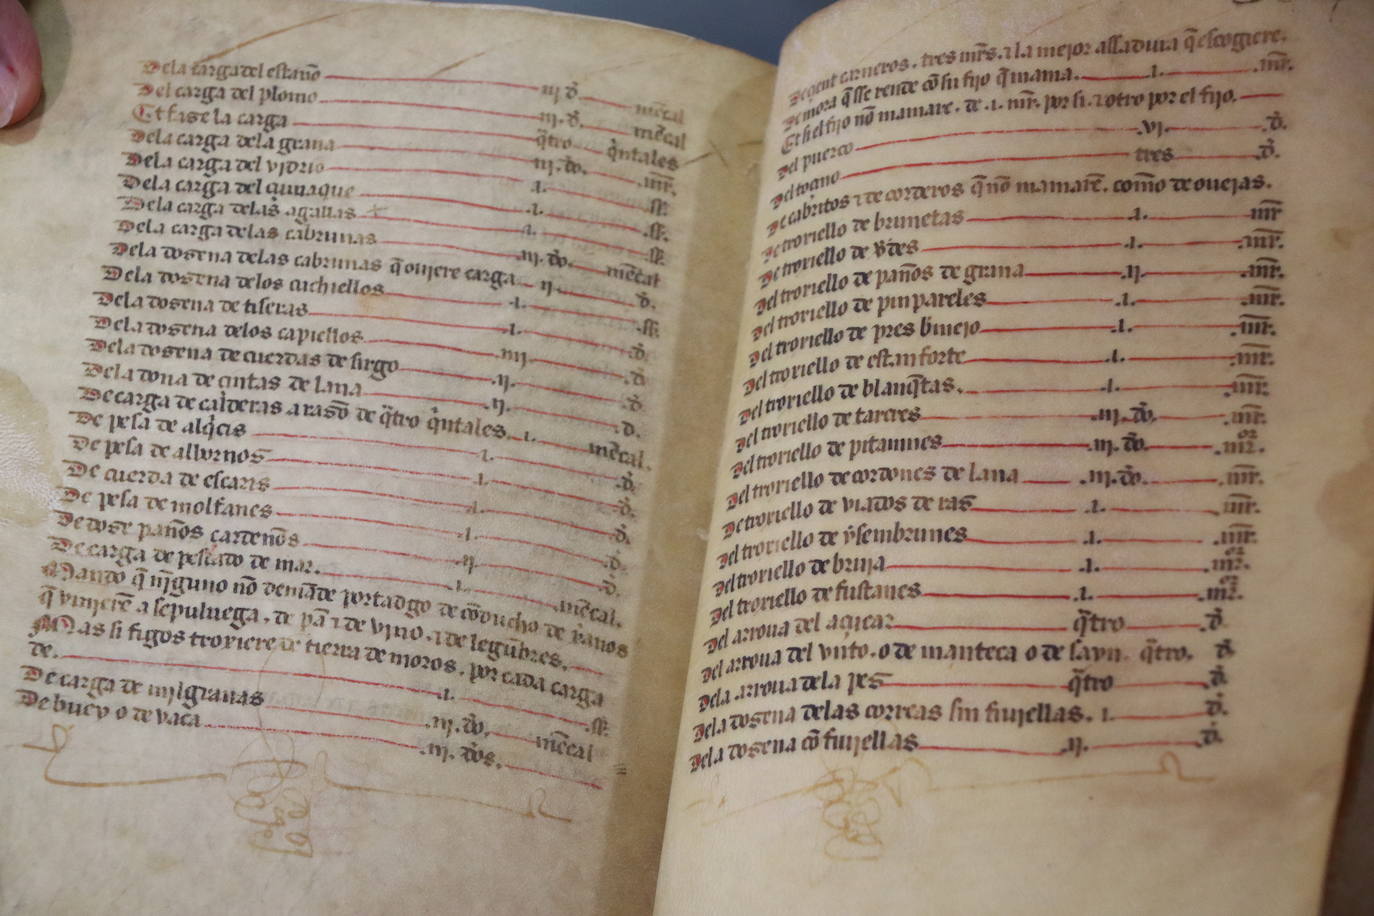 Dela carga del estaño iij d̄. mēcal
Del carga del plomo iij. d̄. mēcal
Et fase la carga q̄tro q̄ntales
Dela carga dela grana iij. do. mr̄.
Dela carga del vidrio .i. ss.
Dela carga del .i. ss.
Dela carga delas agallas .i. ss.
Dela carga delas cabrunas iij. do. mēcal
Dela dosena delas cabrunas q̄ ouiere carga ij d̄.
Dela dosena delos cuchiellos .i. ss.
Dela dosena de tiseras .i. d̄.
Dela dosena delos capiellos iiij d̄.
Dela dosena de cuerdas de sirgo .ij. d̄.
Dela dona de cintas de lana .ij. d̄.
De carga de calderas a rasō de q̄tro q̄ntales .i. mēcal.
De pesa de alq̄cis .i. d̄.
De pesa de albornos .i. d̄.
De cuerda de escaris .i. d̄.
De pesa de molfanes .i. d̄.
De dose paños cardenos ij d̄.
De carga de pescado de mar. .i. mēcal.
Mando q̄ nīguno nō demāde portadgo de cōducho de
q̄ vinierē a sepuluega, de pā ⁊ de vino. ⁊ de legūbres.
Mas si figos troxiere de tierra de moros, por cada carga
de. .i. ss.
De carga de milgranas .iij. do. mēcal
De buey o de vaca .iij. dos.
De çient carneros. tres mr̄s. ⁊ la mejor assadura q̄ escogiere.
De mora q̄ sse vende cō su fijo q̄ mama. .i. mr̄.
Et si el fijo nō mamare. de .i. mr̄. por si. ⁊ otro por el fijo.
Del puerco .vi. d̄.
Del toçino tres d̄.
De cabritos ⁊ de corderos q̄ nō mamarē. como de ouejas.
De troxiello de brunetas .i. mr̄
De troxiello de v̄des .i. mr̄.
Del troxiello de paños de grana .ij. mr̄.
Del troxiello de pinpareles .i. mr̄.
Del troxiello de pres .i. mr̄.
Del troxiello de estanforte .i. mr̄.
Del troxiello de blanq̄tas. .i. mr̄.
Del troxiello de .iij. do. mr̄.
Del troxiello de .iij. do. mr̄.
Del troxiello de cordones de lana .iij. do. mr̄.
De troxiello de viados de ras .i. mr̄.
Del troxiello de ysembrunes .i. mr̄.
Del troxiello de bruia .i. mr̄.
Del troxiello de fustanes .i. mr̄.
Del arroua del açucar q̄tro d̄.
Del arroua del vnto. o de manteca o de sayn. q̄tro. d̄.
Dela arroua dela pes q̄tro d̄.
Dela dosena delas correas sin fiuiellas. i. d̄.
Dela dosena cō fiuiellas .ij. d̄.